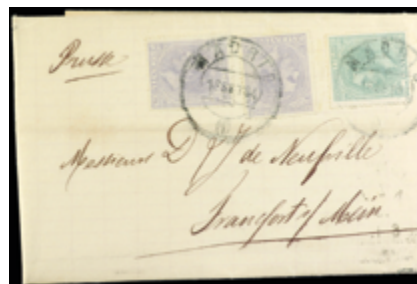 Prusse
MADRID
MADRID
Messieurs D & J de Neufville
Francfort s/ Mein